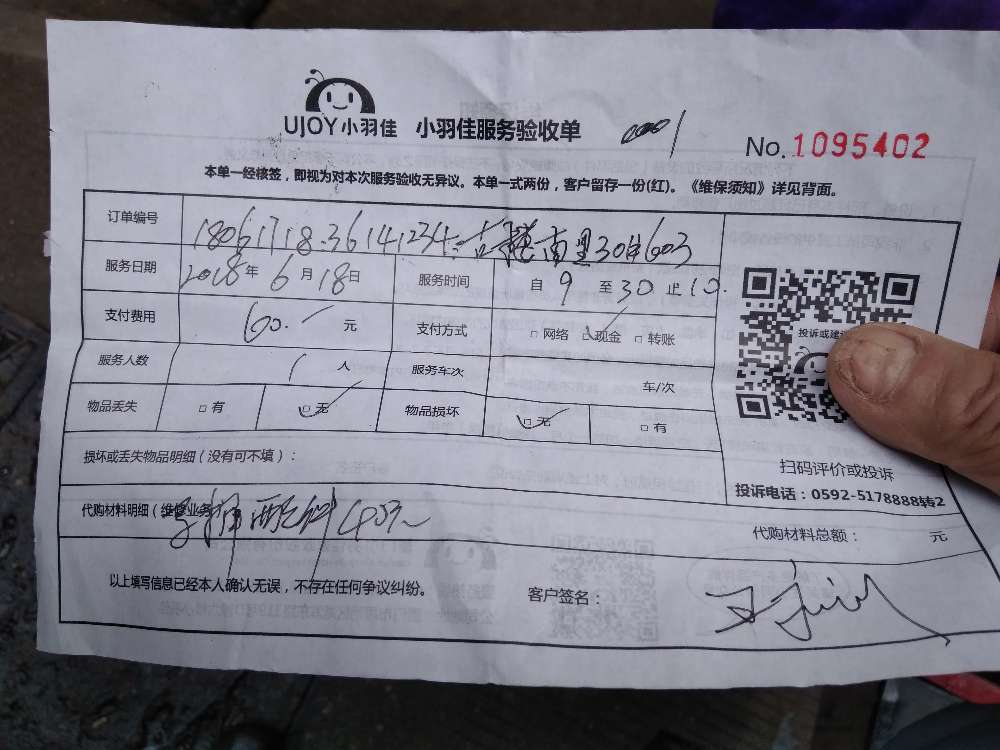 UJOY小羽佳 小羽佳服务验收单 No.1095402
本单一经核签，即视为对本次服务验收无异议。本单一式两份，客户留存一份(红)。《维保须知》详见背面。
订单编号 1806171836141234 南里30 603
服务日期 2018年6月18日 服务时间 自9至30止10.
支付费用 60.元 支付方式 □网络 □现金 □转账
投诉或建议
服务人数 1人 服务车次 车/次
物品丢失 □有 □无 物品损坏 □无 □有
损坏或丢失物品明细（没有可不填）：
扫码评价或投诉
投诉电话：0592-5178888转2
代购材料明细（维修业务 配件40元
代购材料总额： 元
以上填写信息已经本人确认无误，不存在任何争议纠纷。 客户签名：